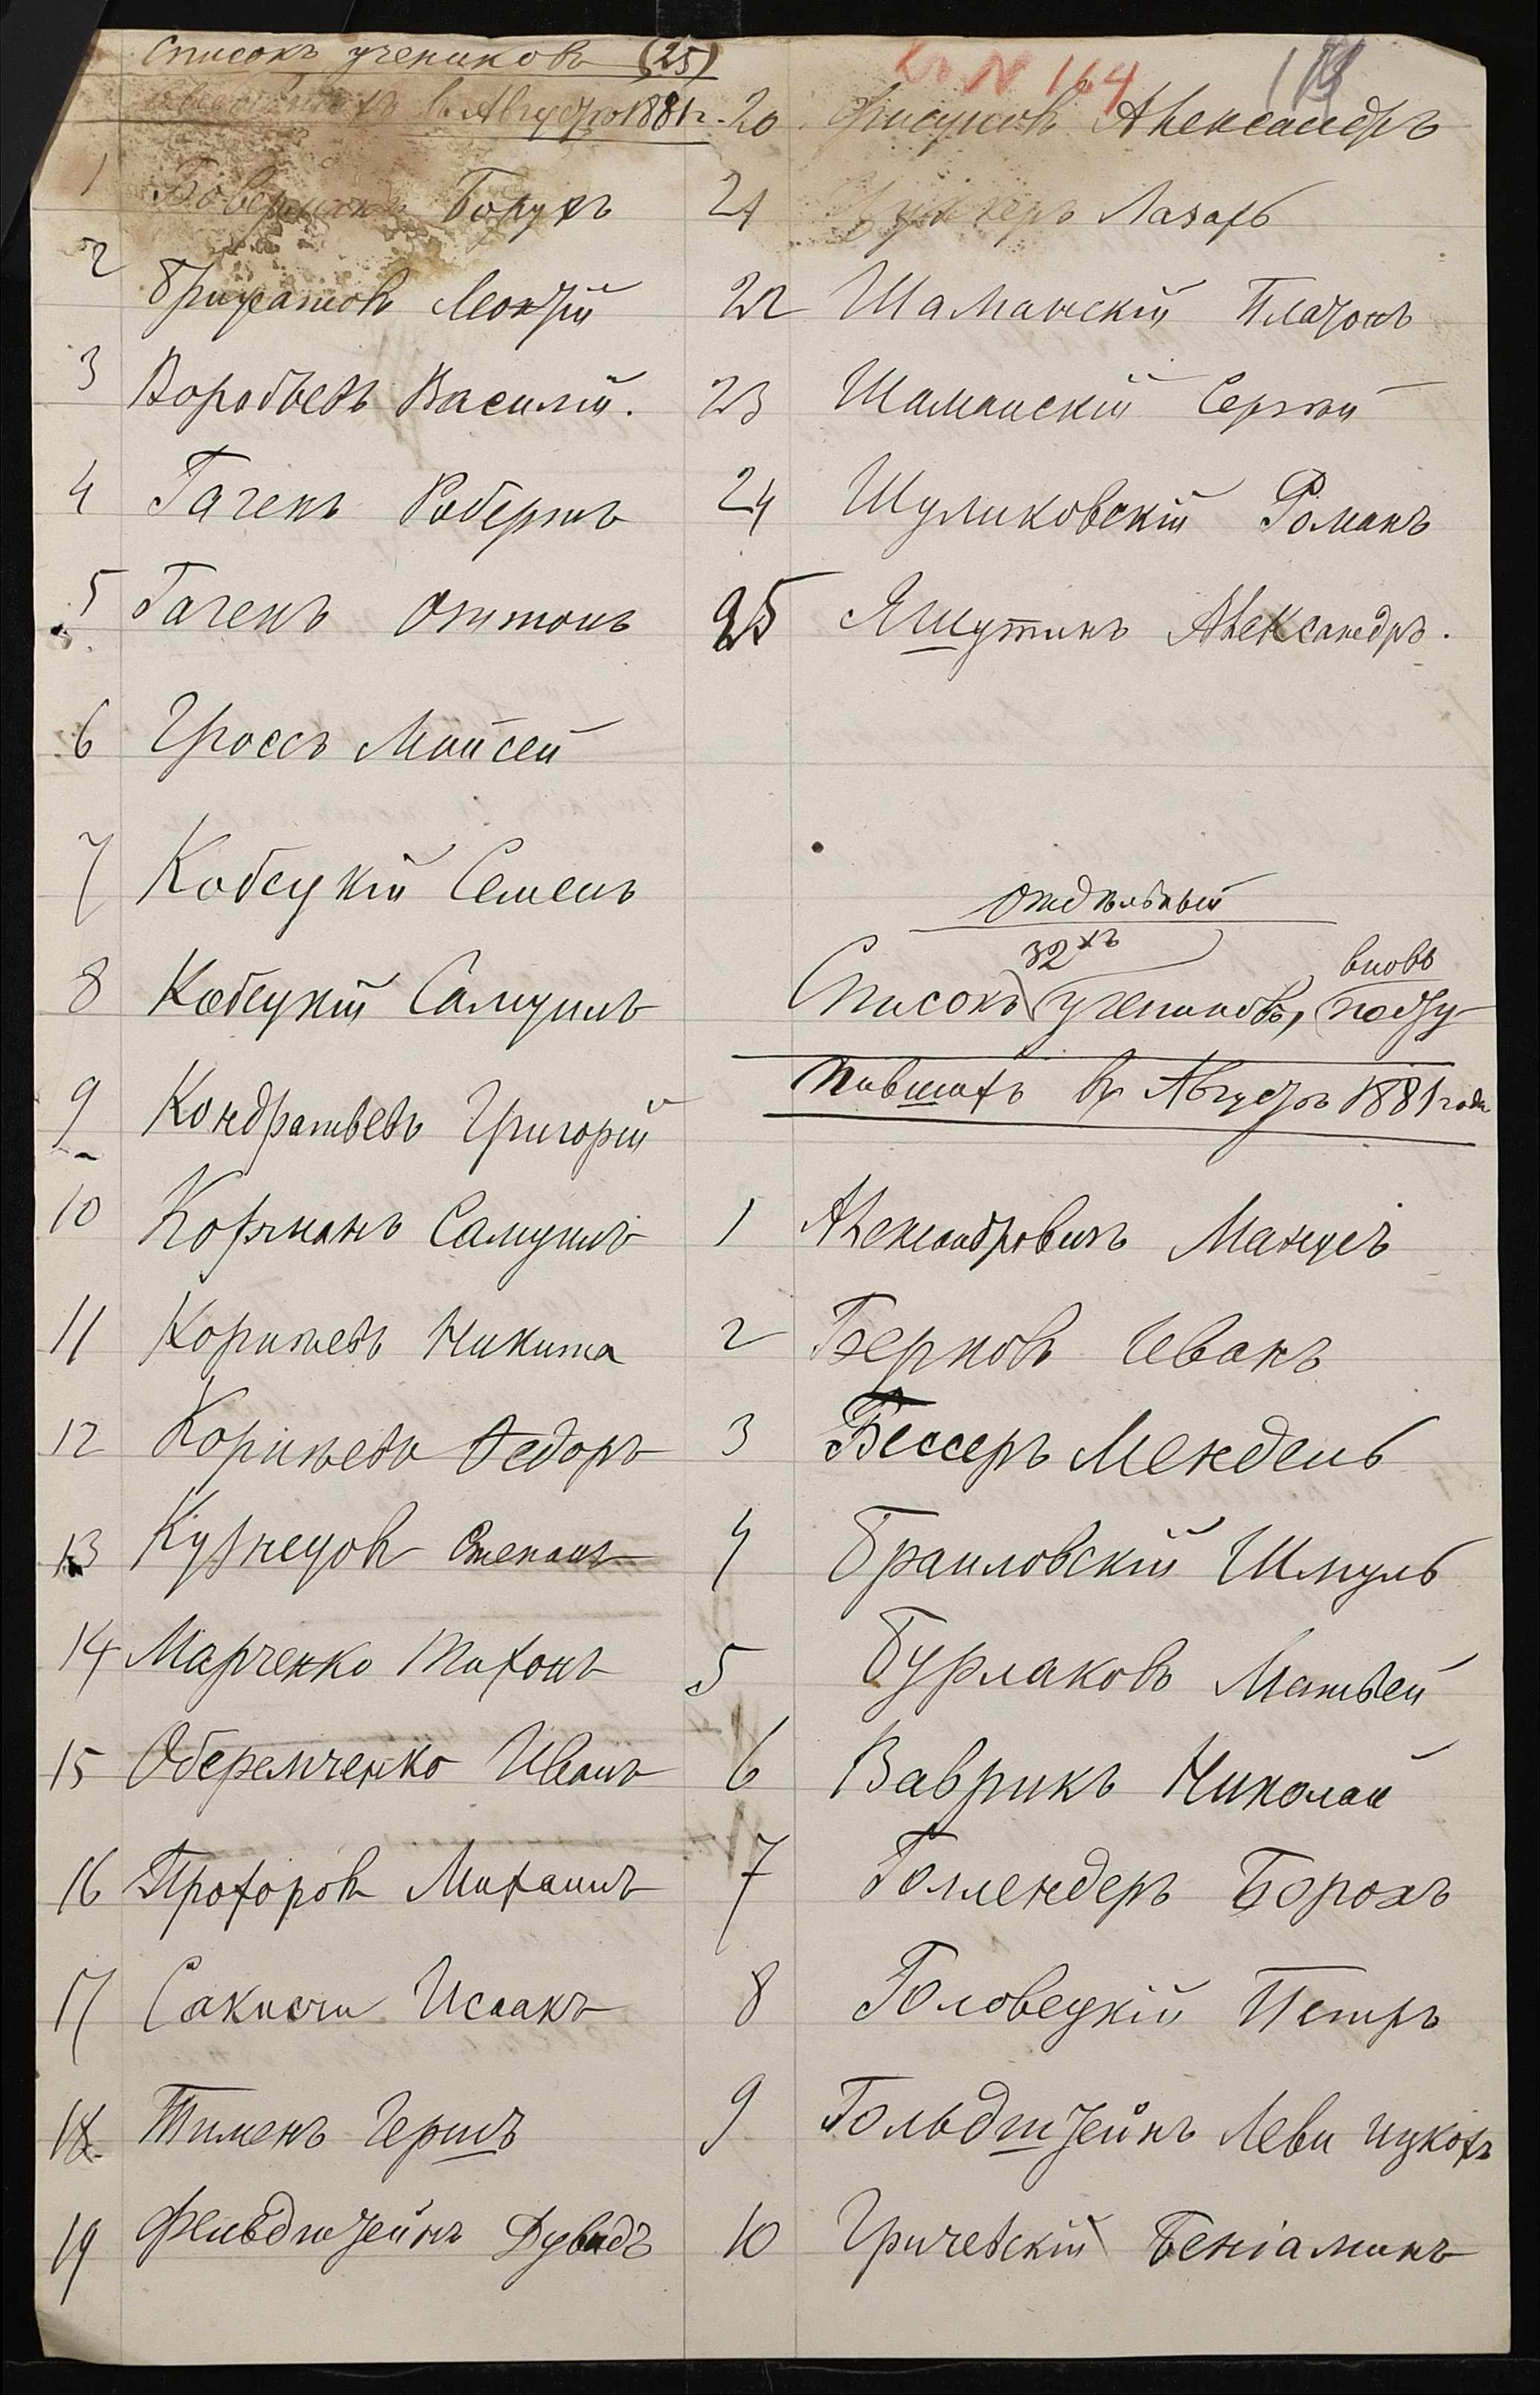 Списокъ учениковъ (25)
въ Августѣ 1881 г.
1 Борухъ
2
3 Воробьевъ Василій.
4 Гагенъ Робертъ
5 Гагенъ Оттонъ
6 Гроссъ Мойсей
7 Кобецкій Семенъ
8 Кобецкій Самуилъ
9 Кондратьевъ Григорій
10 Корчманъ Самуилъ
11 Кориневъ Никита
12 Кориневъ Ѳедоръ
13 Кузнецовъ Степанъ
14 Марченко Тихонъ
15 Оберемченко Иванъ
16 Прохоровъ Михаилъ
17 Исаакъ
18 Тименъ Гершъ
19 Фельдштейнъ Дувидъ
№ 164
20 Александръ
21 Лазарь
22 Шаманскій Платонъ
23 Шаманскій Сергѣй
24 Шуликовскій Романъ
25 Яшутинъ Александръ.
Отдѣльный
32хъ вновь
Списокъ учениковъ, посту-
пившихъ въ Августѣ 1881 года
1 Александровичъ Манусъ
2 Берновъ Иванъ
3 Бессеръ Мендель
4 Браиловскій Шмуль
5 Бурлаковъ Матвѣй
6 Ваврикъ Николай
7 Голлендеръ Борохъ
8 Головецкій Петръ
9 Гольдштейнъ Леви Ицкохъ
10 Гричевскій Беніаминъ